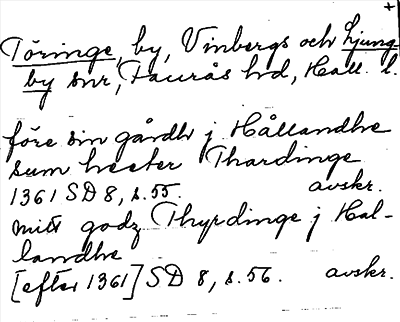 +
Töringe, by, Vinbergs och Ljung-
by snr, Faurås hd, Hall. l.
före sin gårdh j Hållandhe
sum heeter Thardinge
1361 SD 8, s. 55. avskr.
mitt godz Thyrdinge j Hal-
landhe
[efter 1361] SD 8, s. 56. avskr.